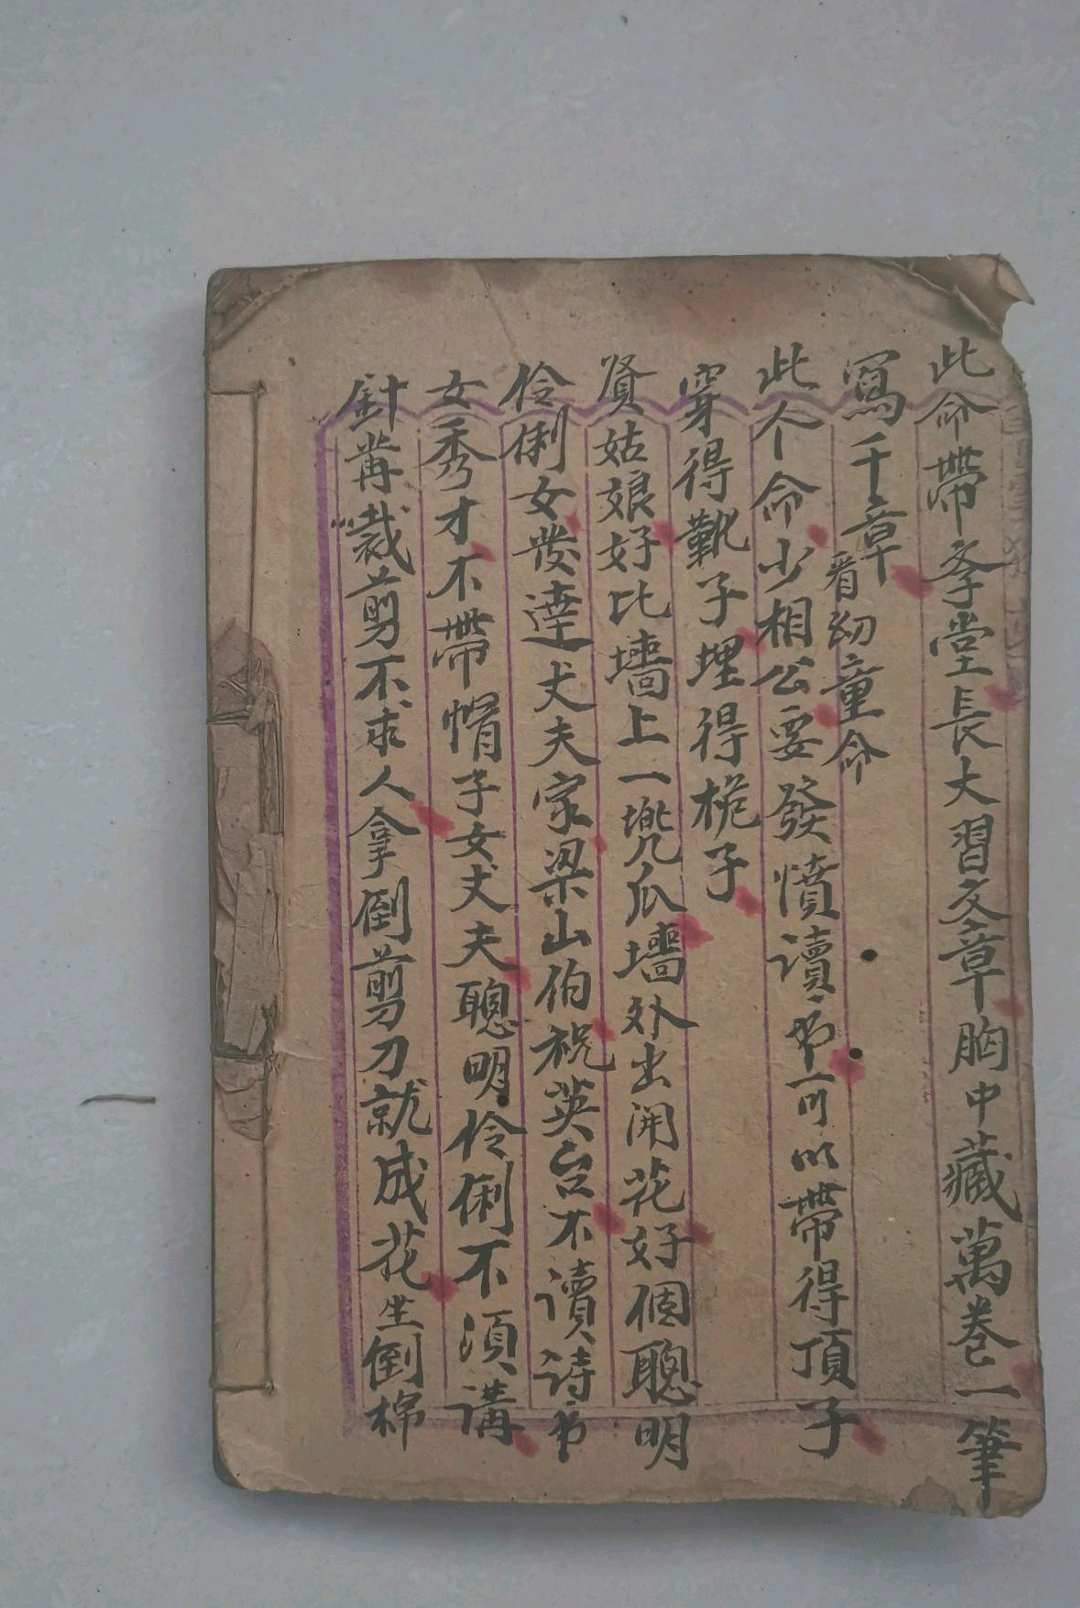 此命帶孝堂長大習文章胸中藏萬卷一筆
寫千章
看幼童命
此个命少相公要發憤讀书可以帶得頂子
穿得靴子埋得桅子
賢姑娘好比墻上一兠瓜墻外出開花好個聰明
伶俐女發達丈夫家梁山伯祝英台不讀詩书
女秀才不帶帽子女丈夫聰明伶俐不須講
針黹裁剪不求人拿倒剪刀就成花生倒棉